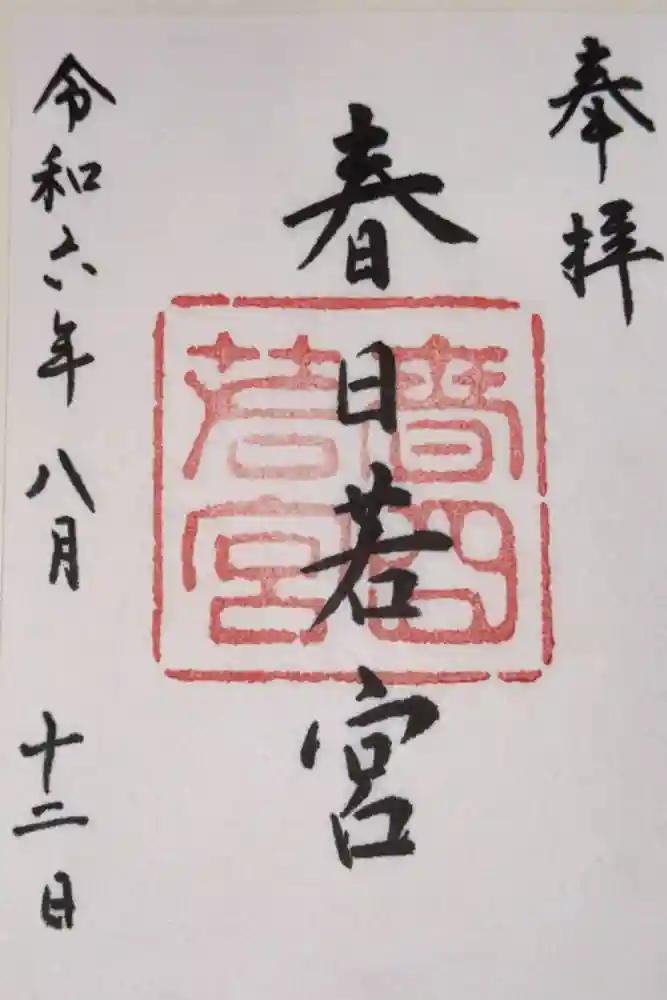 奉拝
春日若宮
春日若宮
令和六年八月十二日